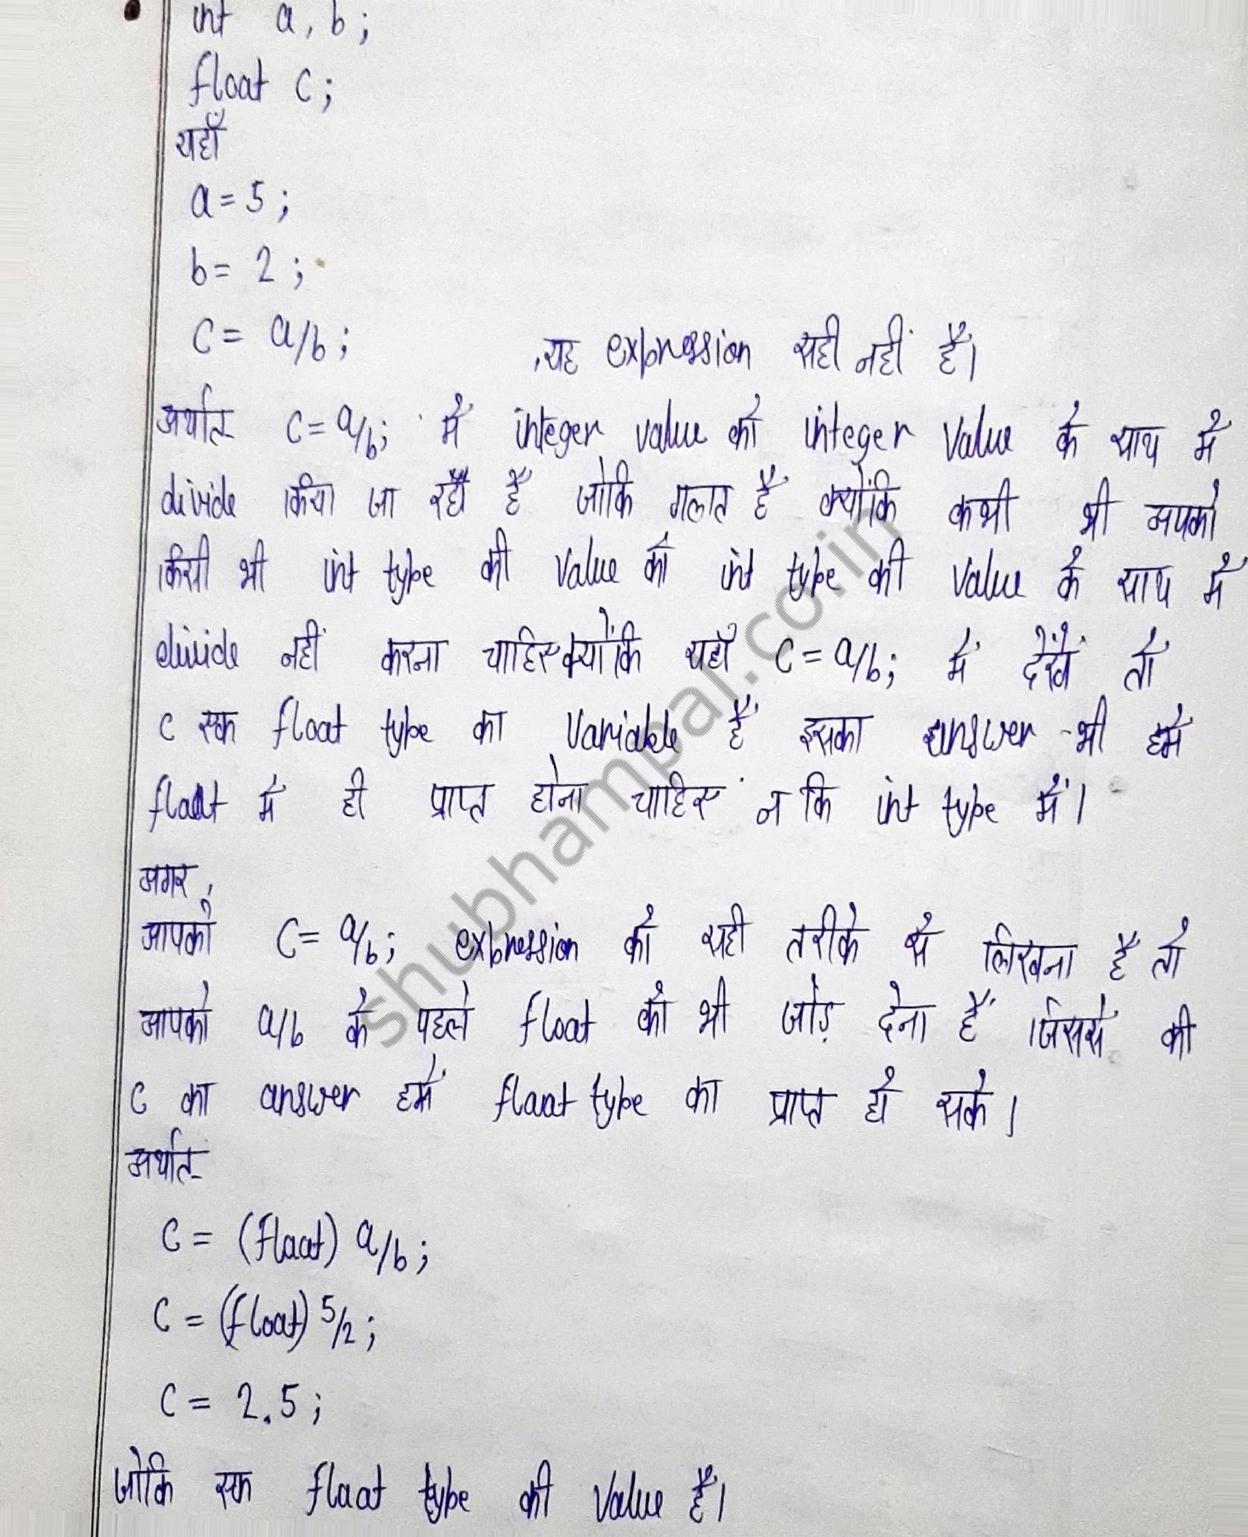 int a, b;
float c;
यहाँ
a = 5;
b = 2;
c = a/b; यह expression सही नहीं है।
अर्थात c = a/b; में integer value को integer value के साथ में
divide किया जा रहाँ है जोकि गलत है क्योंकि कभी भी आपको
किसी भी int type की value को int type की value के साथ में
divide नहीं करना चाहिए क्योंकि यहाँ c = a/b; में देखें तो
c एक float type का variable है इसका answer भी हमें
float में ही प्राप्त होना चाहिए न कि int type में।
अगर,
आपको c = a/b; expression को सही तरीके से लिखना है तो
आपको a/b के पहले float को भी जोड़ देना है जिससे की
c का answer हमें float type का प्राप्त हो सके।
अर्थात
c = (float) a/b;
c = (float) 5/2;
c = 2.5;
जोकि एक float type की value है।
shubhampal.co.in